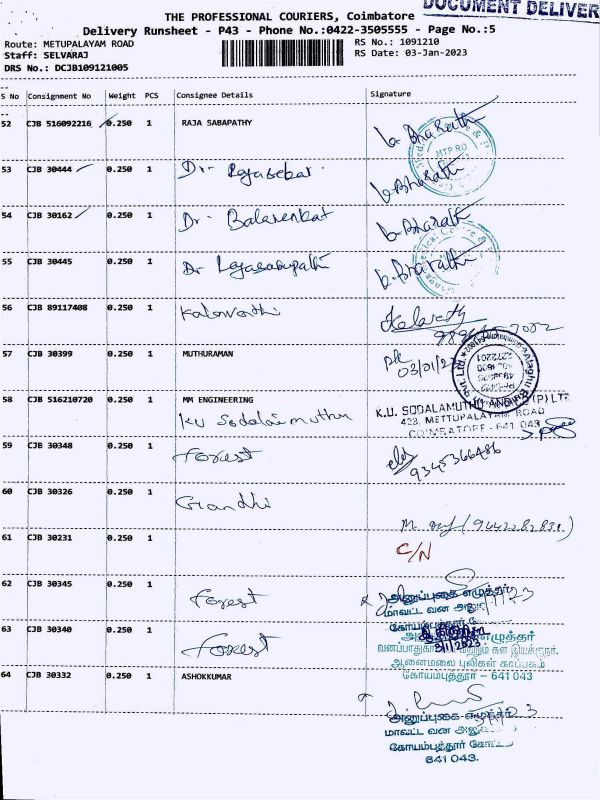 DOCUMENT DELIVER
THE PROFESSIONAL COURIERS, Coimbatore
Delivery Runsheet - P43 - Phone No.:0422-3505555 - Page No.:5
Route: METUPALAYAM ROAD
RS No.: 1091210
Staff: SELVARAJ
RS Date: 03-Jan-2023
DRS No.: DCJB109121005
S No Consignment No Weight PCS Consignee Details Signature
52 CJB 516092216 0.250 1 RAJA SABAPATHY b. Bharathi
MTP RD
53 CJB 30444 0.250 1 Dr. Rajasekar b. Bharathi
54 CJB 30162 0.250 1 Dr. Balavenkat b. Bharathi
55 CJB 30445 0.250 1 Dr Rajasabapathi b. Bharathi
56 CJB 89117408 0.250 1 Kalavathi
57 CJB 30399 0.250 1 MUTHURAMAN
03/01/2
58 CJB 516210720 0.250 1 MM ENGINEERING
KU Sodalaimuthu
K.U. SODALAMUTHU AND CO (P) LTD
423, METTUPALAYAM ROAD
COIMBATORE - 641 043
59 CJB 30348 0.250 1 Forest
9345366486
60 CJB 30326 0.250 1 Gandhi
61 CJB 30231 0.250 1 C/N
62 CJB 30345 0.250 1 Forest
அனுப்புகை எழுத்தர்
மாவட்ட வன
கோயம்புத்தூர்
63 CJB 30340 0.250 1 Forest
3/1/2023
வனப்பாதுகா மற்றும் கள இயக்குநர்
ஆனைமலை புலிகள் காப்பகம்
கோயம்புத்தூர் - 641 043
64 CJB 30332 0.250 1 ASHOKKUMAR
அனுப்புகை எழுத்தர்
மாவட்ட வன
கோயம்புத்தூர் கோட்
641 043.